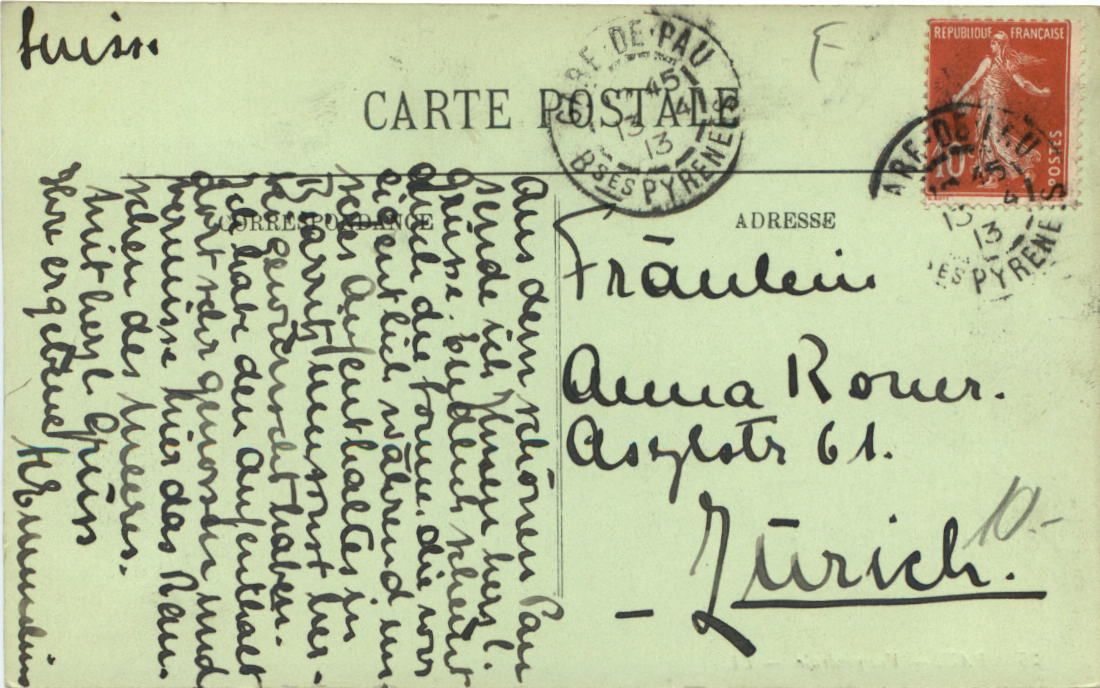 Suisse
CARTE POSTALE
GARE-DE-PAU
45
13 4
13
BSES PYRENEES
F
REPUBLIQUE FRANÇAISE
10
POSTES
GARE-DE-PAU
45
13 4
13
BSES PYRENEES
CORRESPONDANCE
ADRESSE
Aus dem schönen Pau
sende ich Ihnen herzl.
Grüsse. Endlich scheint
auch die Sonne, die wir
eigentlich während un-
seres Aufenthaltes in
Biarritz umsonst her-
beigewünscht haben.
Ich habe den Aufenthalt
dort sehr genossen und
vermisse hier das Rau-
schen des Meeres.
Mit herzl. Gruss
Ihre ergebene
Fräulein
Anna Roner.
Asylstr 61.
Zürich.
10.-